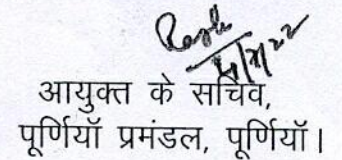 आयुक्त के सचिव,
पूर्णियॉ प्रमंडल, पूर्णियॉ।